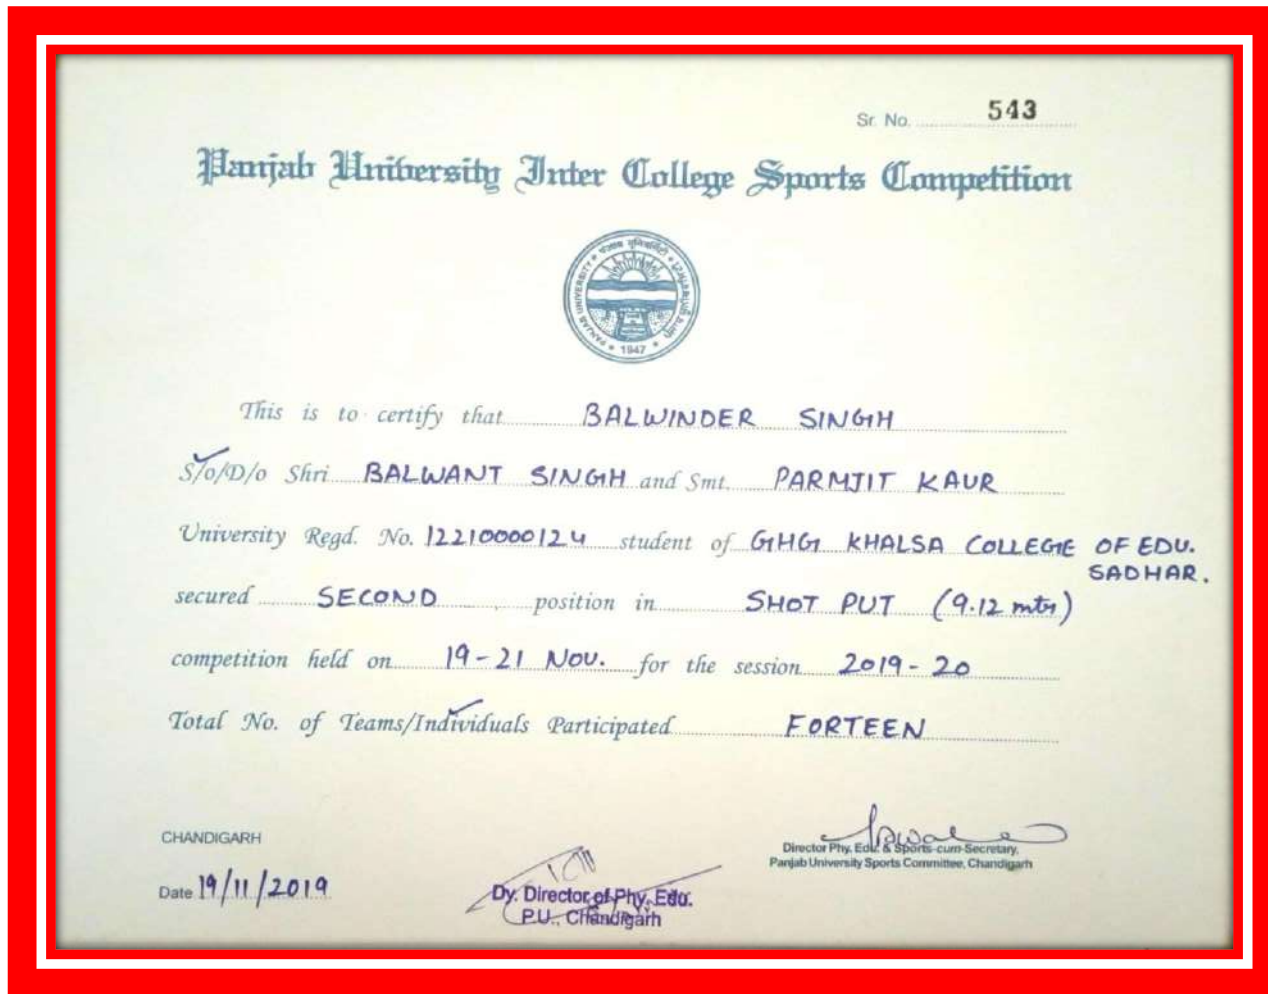 Sr. No. 543
Panjab University Inter College Sports Competition
PANJAB UNIVERSITY
1947
This is to certify that BALWINDER SINGH
S/o/D/o Shri BALWANT SINGH and Smt. PARMJIT KAUR
University Regd. No. 12210000124 student of GHG KHALSA COLLEGE OF EDU.
SADHAR.
secured SECOND position in SHOT PUT (9.12 mtr)
competition held on 19-21 NOV. for the session 2019-20
Total No. of Teams/Individuals Participated FORTEEN
CHANDIGARH
Date 19/11/2019
Dy. Director of Phy. Edu.
P.U., Chandigarh
Director Phy. Edu. & Sports-cum-Secretary,
Panjab University Sports Committee, Chandigarh